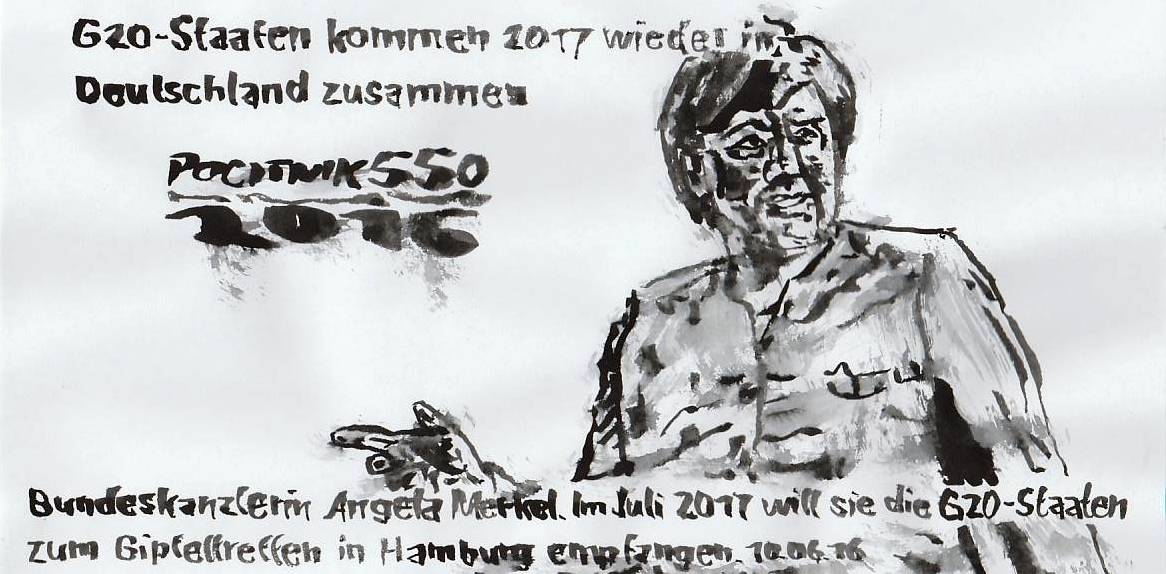 G20-Staaten kommen 2017 wieder in
Deutschland zusammen
POCITNIK550
2016
Bundeskanzlerin Angela Merkel. Im Juli 2017 will sie die G20-Staaten
zum Gipfeltreffen in Hamburg empfangen. 10.06.16